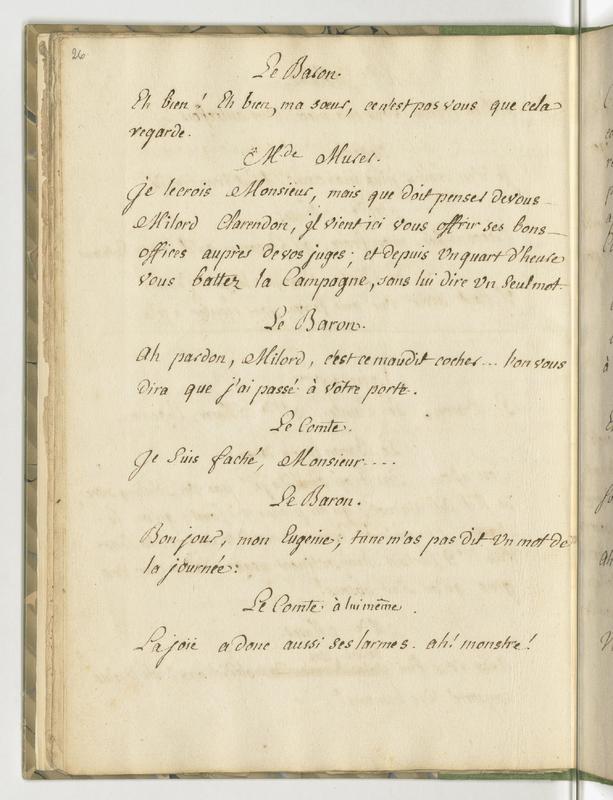 26
Le Baron.
Eh bien! Eh bien, ma sœur, ce n'est pas vous que cela
regarde.
M.de Murer.
Je le crois Monsieur, mais que doit penser de vous
Milord Clarendon, il vient ici vous offrir ses bons
offices auprès de vos juges; et depuis un quart d'heure
vous battez la Campagne, sans lui dire un seul mot.
Le Baron.
Ah pardon, Milord, c'est ce maudit cocher... l'on vous
dira que j'ai passé à votre porte.
Le Comte.
Je suis faché, Monsieur....
Le Baron.
Bon jour, mon Eugenie; tu ne m'as pas dit un mot de
la journée:
Le Comte à lui même.
La joie a donc aussi ses larmes. ah! monstre!